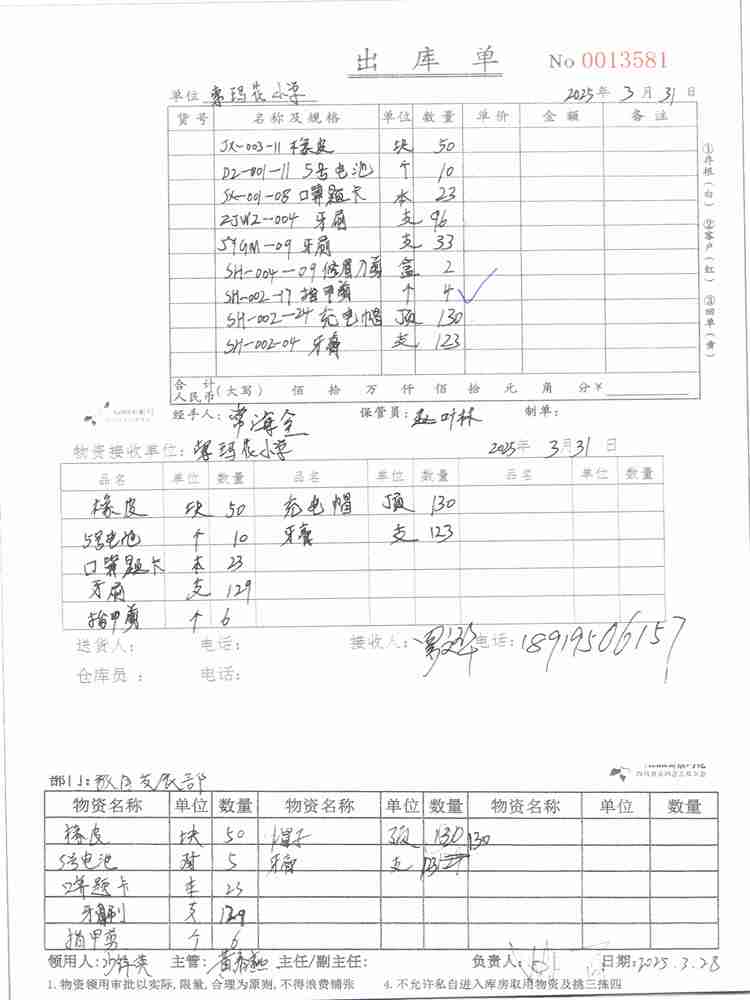 出库单 No 0013581
单位 小学 2025年 3月 31日
货号 名称及规格 单位 数量 单价 金额 备注
JX-003-11 橡皮 块 50
DZ-001-11 5号电池 个 10
SX-001-08 口算题卡 本 23
ZJWZ-004 牙刷 支 96
SYGM-09 牙刷 支 33
SH-004-09 修眉刀剪 盒 2
SH-002-17 指甲剪 个 4
SH-002-24 充电帽 顶 130
SH-002-04 牙膏 支 123
合计人民币(大写) 佰 拾 万 仟 佰 拾 元 角 分 ¥
①存根(白) ②客户(红) ③回单(黄)
经手人: 保管员: 叶林 制单:
物资接收单位: 小学 2025年 3月31日
品名 单位 数量 品名 单位 数量 品名 单位 数量
橡皮 块 50 充电帽 顶 130
5号电池 个 10 牙膏 支 123
口算题卡 本 23
牙刷 支 129
指甲剪 个 6
送货人: 电话: 接收人: 电话: 18919506157
仓库员: 电话:
部门: 发展部
物资名称 单位 数量 物资名称 单位 数量 物资名称 单位 数量
橡皮 块 50 帽子 顶 130 130
5号电池 对 5 牙膏 支
口算题卡 本 23
牙刷 支 129
指甲剪 个 6
领用人: 主管: 主任/副主任: 负责人: 日期: 2025.3.28
1.物资领用审批以实际,限量,合理为原则,不得浪费铺张 4.不允许私自进入库房取用物资及挑三拣四